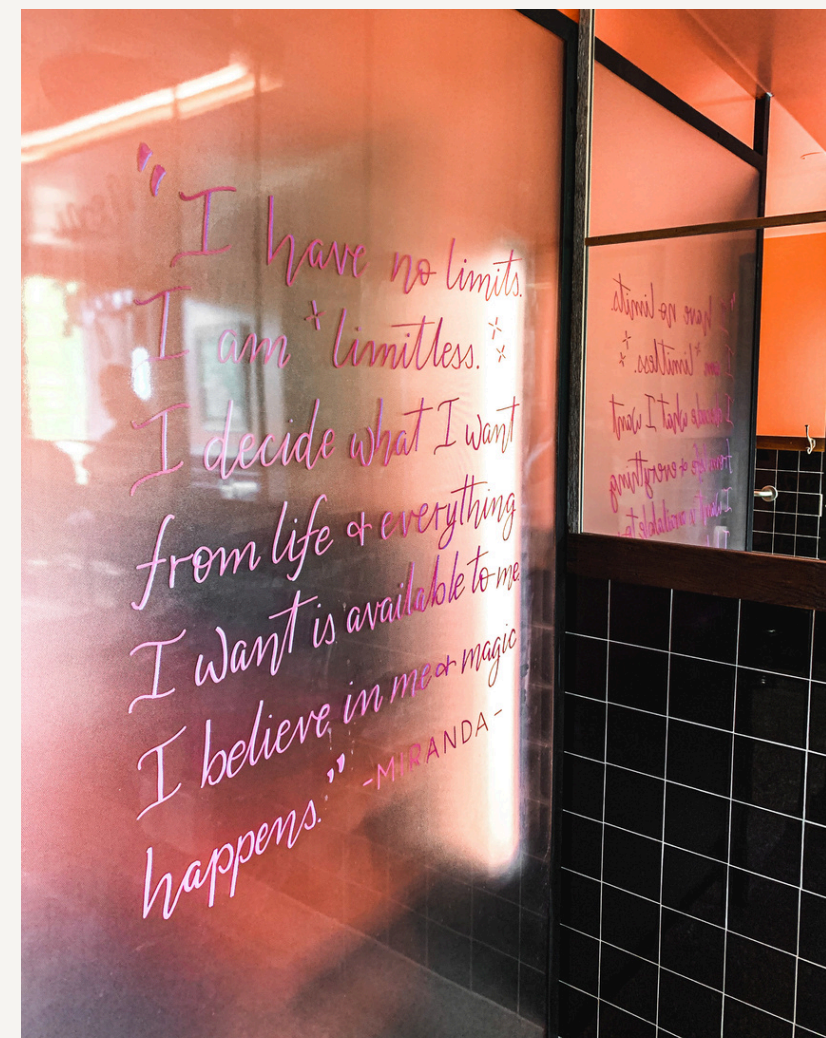 "I have no limits.
I am limitless.
I decide what I want
from life & everything
I want is available to me.
I believe in me & magic
happens." -MIRANDA-